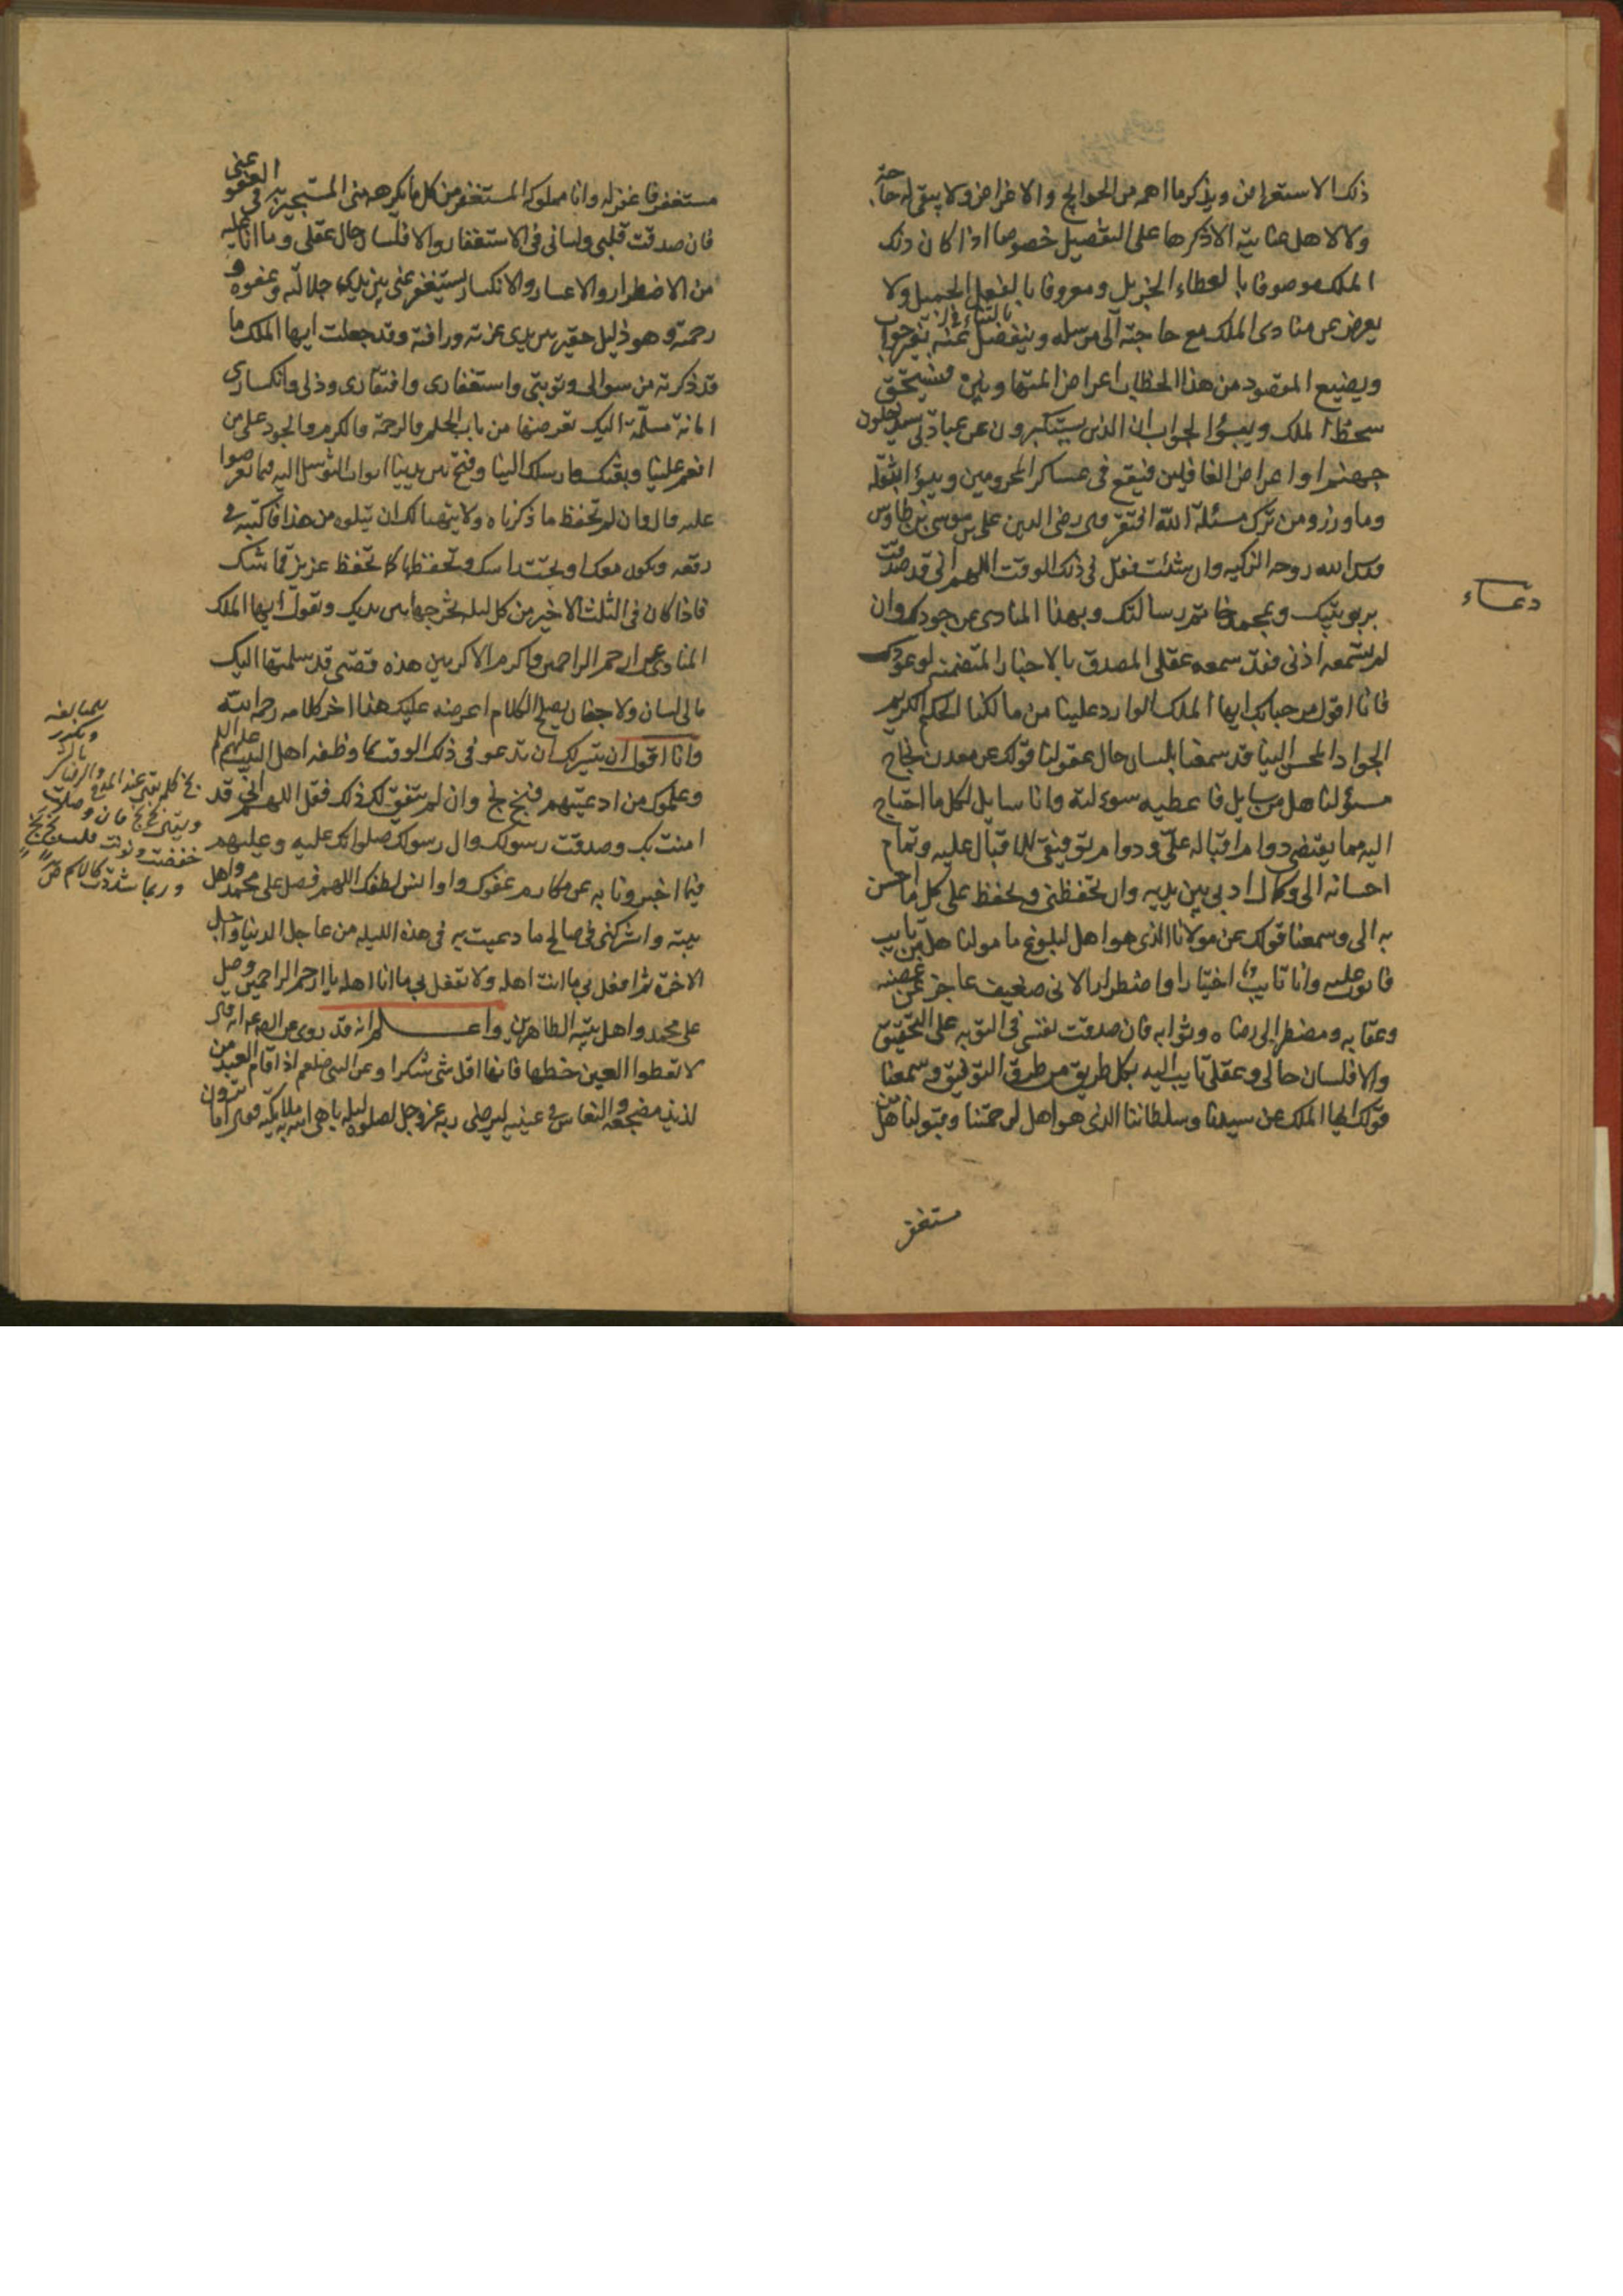 ذلك الاستعراض ويذكر ما اهمه من الحوايج والاغراض ولا يبقى له حاجة
ولا لاهل عنايته الا ذكرها على التفصيل خصوصا اذا كان ذلك
الملك موصوفا بالعطاء الجزيل ومعروفا بالفعل الجميل ولا
يعرض عن منادى الملك مع حاجته الى مرسله وينفصل عنه بغير جواب
ويضيع المقصود من هذا الخطاب اعراض المتهاونين فيستحق
سخط الملك ويبوء الجواب ان الذين يستكبرون عن عبادتي سيدخلون
جهنم او اعراض الغافلين فيقع في عساكر المحرومين ويبوء اثقله
وما وزر ومن ترك مسئلة الله افتقر وى رضي الدين علي بن موسى بن طاوس
قدس الله روحه الزكيه وان شئت فقل في ذلك الوقت اللهم اني قد صدقت
دعاء
بربوبيتك وبمحمد خاتم رسالتك وبهذا المنادى عن جودك وان
لم تسمعه اذني فقد سمعه عقلي المصدق بالاخبار المتضمنه لوعودك
فانا اقول مرحبا بك ايها الملك الوارد علينا من مالكنا الحكيم الكريم
الجواد المحسن الينا قد سمعنا بلسان حال عقولنا قولك عن معدن نجاح
مسؤلنا هل من سايل فاعطيه سوءله وانا سايل لكل ما احتاج
اليه مما يقتضي دوام اقباله علي ودوام توفيقي للاقبال عليه وتمام
احسانه الي وكمال ادبي بين يديه وان تحفظني وتحفظ علي كل ما احسن
به الي وسمعنا قولك عن مولانا الذي هو اهل لبلوغ مامولنا هل من تايب
فاتوب عليه وانا تايب اختيارا واضطرارا لاني ضعيف عاجز عن غضبه
وعقابه ومضطر الى رضاه وثوابه فان صدقت نفسي في التوبه على التحقيق
والا فلسان حالي وعقلي تايب اليه بكل طريق من طرق التوفيق وسمعنا
قولك ايها الملك عن سيدنا وسلطاننا الذي هو اهل لرحمتنا وقبولنا هل من
مستغفر
مستغفر فاغفر له وانا مملوكه المستغفر من كل ما يكره مني المستجير به في العفو عني
فان صدقت قلبي ولساني في الاستغفار والا فلسان حال عقلي وما انا عليه
من الاضطرار والاعسار والانكسار يستغفر عني بين يدي جلالته وعفوه و
رحمته وهو ذليل حقير بين يدي عزته ورافته وقد جعلت ايها الملك ما
قد ذكرته من سوالي وتوبتي واستغفاري وافتقاري وذلي وانكساري
امانة مسلمة اليك تعرضها من باب الحلم والرحمة والكرم والجود على من
انعم علينا وبعثك وارسلك الينا وفتح بين يدينا ابواب التوسل اليه فيما تعرضوا
عليه قال وان لم تحفظ ما ذكرناه ولا يتهيا لك ان تتلوه من هذا فاكتبه في
رقعه وتكون معك او تحت راسك وتحفظها كما تحفظ عزيز قماشك
فاذا كان في الثلث الاخير من كل ليله تخرجها بين يديك وتقول ايها الملك
المنادي عن ارحم الراحمين واكرم الاكرمين هذه قصتي قد سلمتها اليك
ما لي لسان ولا جنان يصلح الكلام اعرضه عليك هذا اخر كلامه رحمه الله
وانا اقول ان تيسر لك ان تدعو في ذلك الوقت بما وظفه اهل البيت عليهم السلام
وعلموك من ادعيتهم فبخ بخ وان لم يتفق لك ذلك فقل اللهم اني قد
امنت بك وصدقت رسولك وال رسولك صلواتك عليه وعليهم
فيما اخبرونا به عن مكارم عفوك واوانس لطفك اللهم فصل على محمد واهل
بيته واشركني في صالح ما دعيت به في هذه الليله من عاجل الدنيا واجل
الاخرة ثم افعل بي ما انت اهله ولا تفعل بي ما انا اهله يا ارحم الراحمين وصل
على محمد واهل بيته الطاهرين واعلم انه قد روى عن
لا تعطوا العين حظها فانها اقل شئ شكرا وعن النبي صلعم اذا قام العبد من
لذيذ مضجعه والنعاس في عينيه ليرضي ربه عز وجل لصلوه ليله باهى الله به ملائكته فقال اما ترون
بخ كلمه تقال عند المدح والرضا بالشئ
وتكرر للمبالغه
ويقال بخ بخ فان وصلت
خفضت ونونت فقلت بخ بخ
وربما شددت كالاسم